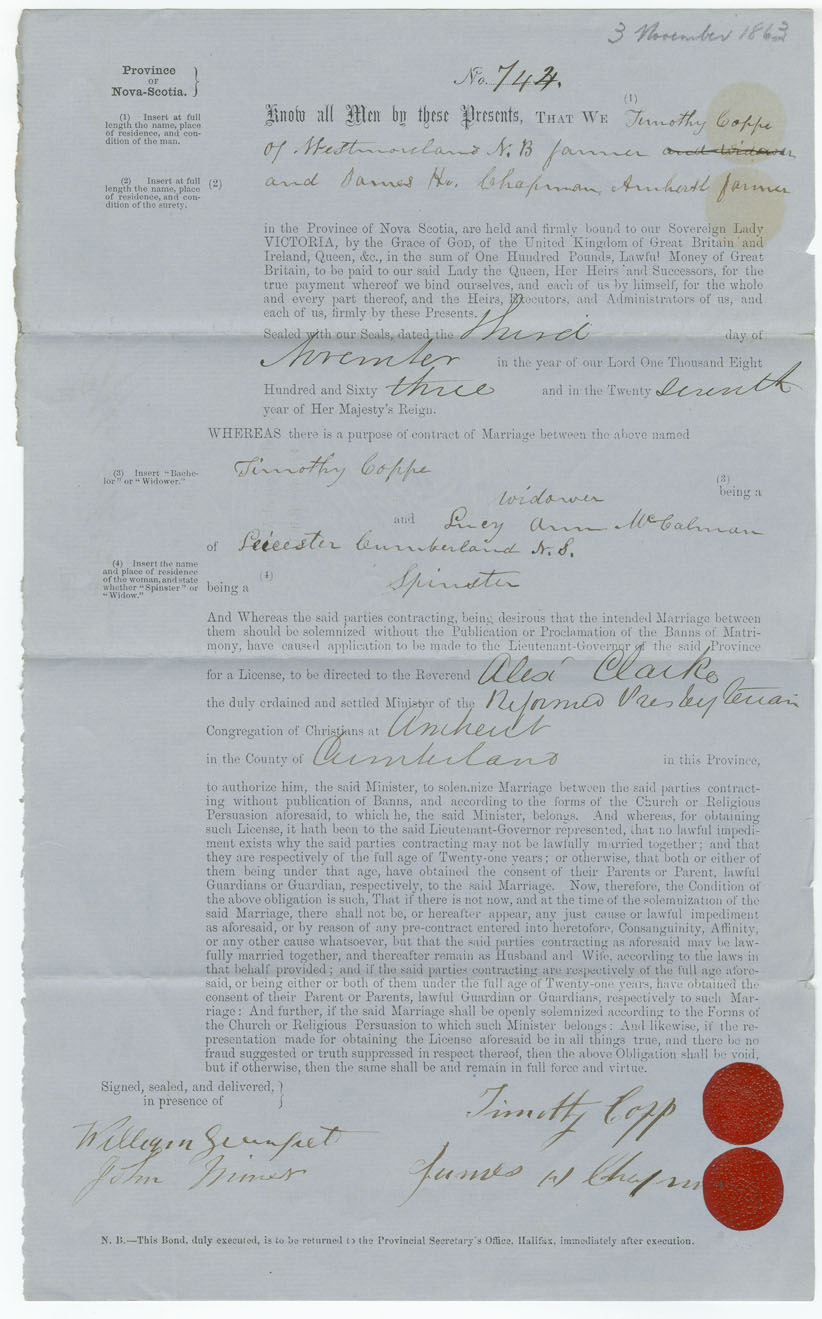 3 November 1863
Province
OF
Nova-Scotia.
No. 742.
(1) Insert at full
length the name, place
of residence, and con-
dition of the man.
Know all Men by these Presents, THAT WE (1) Timothy Coppe
of Westmoreland N.B farmer and widower
(2) Insert at full
length the name, place
of residence, and con-
dition of the surety.
(2) and James Hy. Chapman, Amherst farmer
in the Province of Nova Scotia, are held and firmly bound to our Sovereign Lady
VICTORIA, by the Grace of GOD, of the United Kingdom of Great Britain and
Ireland, Queen, &c., in the sum of One Hundred Pounds, Lawful Money of Great
Britain, to be paid to our said Lady the Queen, Her Heirs and Successors, for the
true payment whereof we bind ourselves, and each of us by himself, for the whole
and every part thereof, and the Heirs, Executors, and Administrators of us, and
each of us, firmly by these Presents.
Sealed with our Seals, dated the third day of
November in the year of our Lord One Thousand Eight
Hundred and Sixty three and in the Twenty seventh
year of Her Majesty's Reign.
WHEREAS there is a purpose of contract of Marriage between the above named
(3) Insert "Bache-
lor" or "Widower."
Timothy Coppe
(3)
widower being a
and Lucy Ann McCalman
of Leicester Cumberland N.S.
(4) Insert the name
and place of residence
of the woman, and state
whether "Spinster" or
"Widow."
being a (4) Spinster
And Whereas the said parties contracting, being desirous that the intended Marriage between
them should be solemnized without the Publication or Proclamation of the Banns of Matri-
mony, have caused application to be made to the Lieutenant-Governor of the said Province
for a License, to be directed to the Reverend Alex Clarke
the duly ordained and settled Minister of the Reformed Presbyterian
Congregation of Christians at Amherst
in the County of Cumberland in this Province,
to authorize him, the said Minister, to solemnize Marriage between the said parties contract-
ing without publication of Banns, and according to the forms of the Church or Religious
Persuasion aforesaid, to which he, the said Minister, belongs. And whereas, for obtaining
such License, it hath been to the said Lieutenant-Governor represented, that no lawful impedi-
ment exists why the said parties contracting may not be lawfully married together; and that
they are respectively of the full age of Twenty-one years; or otherwise, that both or either of
them being under that age, have obtained the consent of their Parents or Parent, lawful
Guardians or Guardian, respectively, to the said Marriage. Now, therefore, the Condition of
the above obligation is such, That if there is not now, and at the time of the solemnization of the
said Marriage, there shall not be, or hereafter appear, any just cause or lawful impediment
as aforesaid, or by reason of any pre-contract entered into heretofore, Consanguinity, Affinity,
or any other cause whatsoever, but that the said parties contracting as aforesaid may be law-
fully married together, and thereafter remain as Husband and Wife, according to the laws in
that behalf provided; and if the said parties contracting are respectively of the full age afore-
said, or being either or both of them under the full age of Twenty-one years, have obtained the
consent of their Parent or Parents, lawful Guardian or Guardians, respectively to such Mar-
riage: And further, if the said Marriage shall be openly solemnized according to the Forms of
the Church or Religious Persuasion to which such Minister belongs: And likewise, if the re-
presentation made for obtaining the License aforesaid be in all things true, and there be no
fraud suggested or truth suppressed in respect thereof, then the above Obligation shall be void,
but if otherwise, then the same shall be and remain in full force and virtue.
Signed, sealed, and delivered,
in presence of
Timothy Copp
William
John
James W Chapm
N. B.—This Bond, duly executed, is to be returned to the Provincial Secretary's Office, Halifax, immediately after execution.